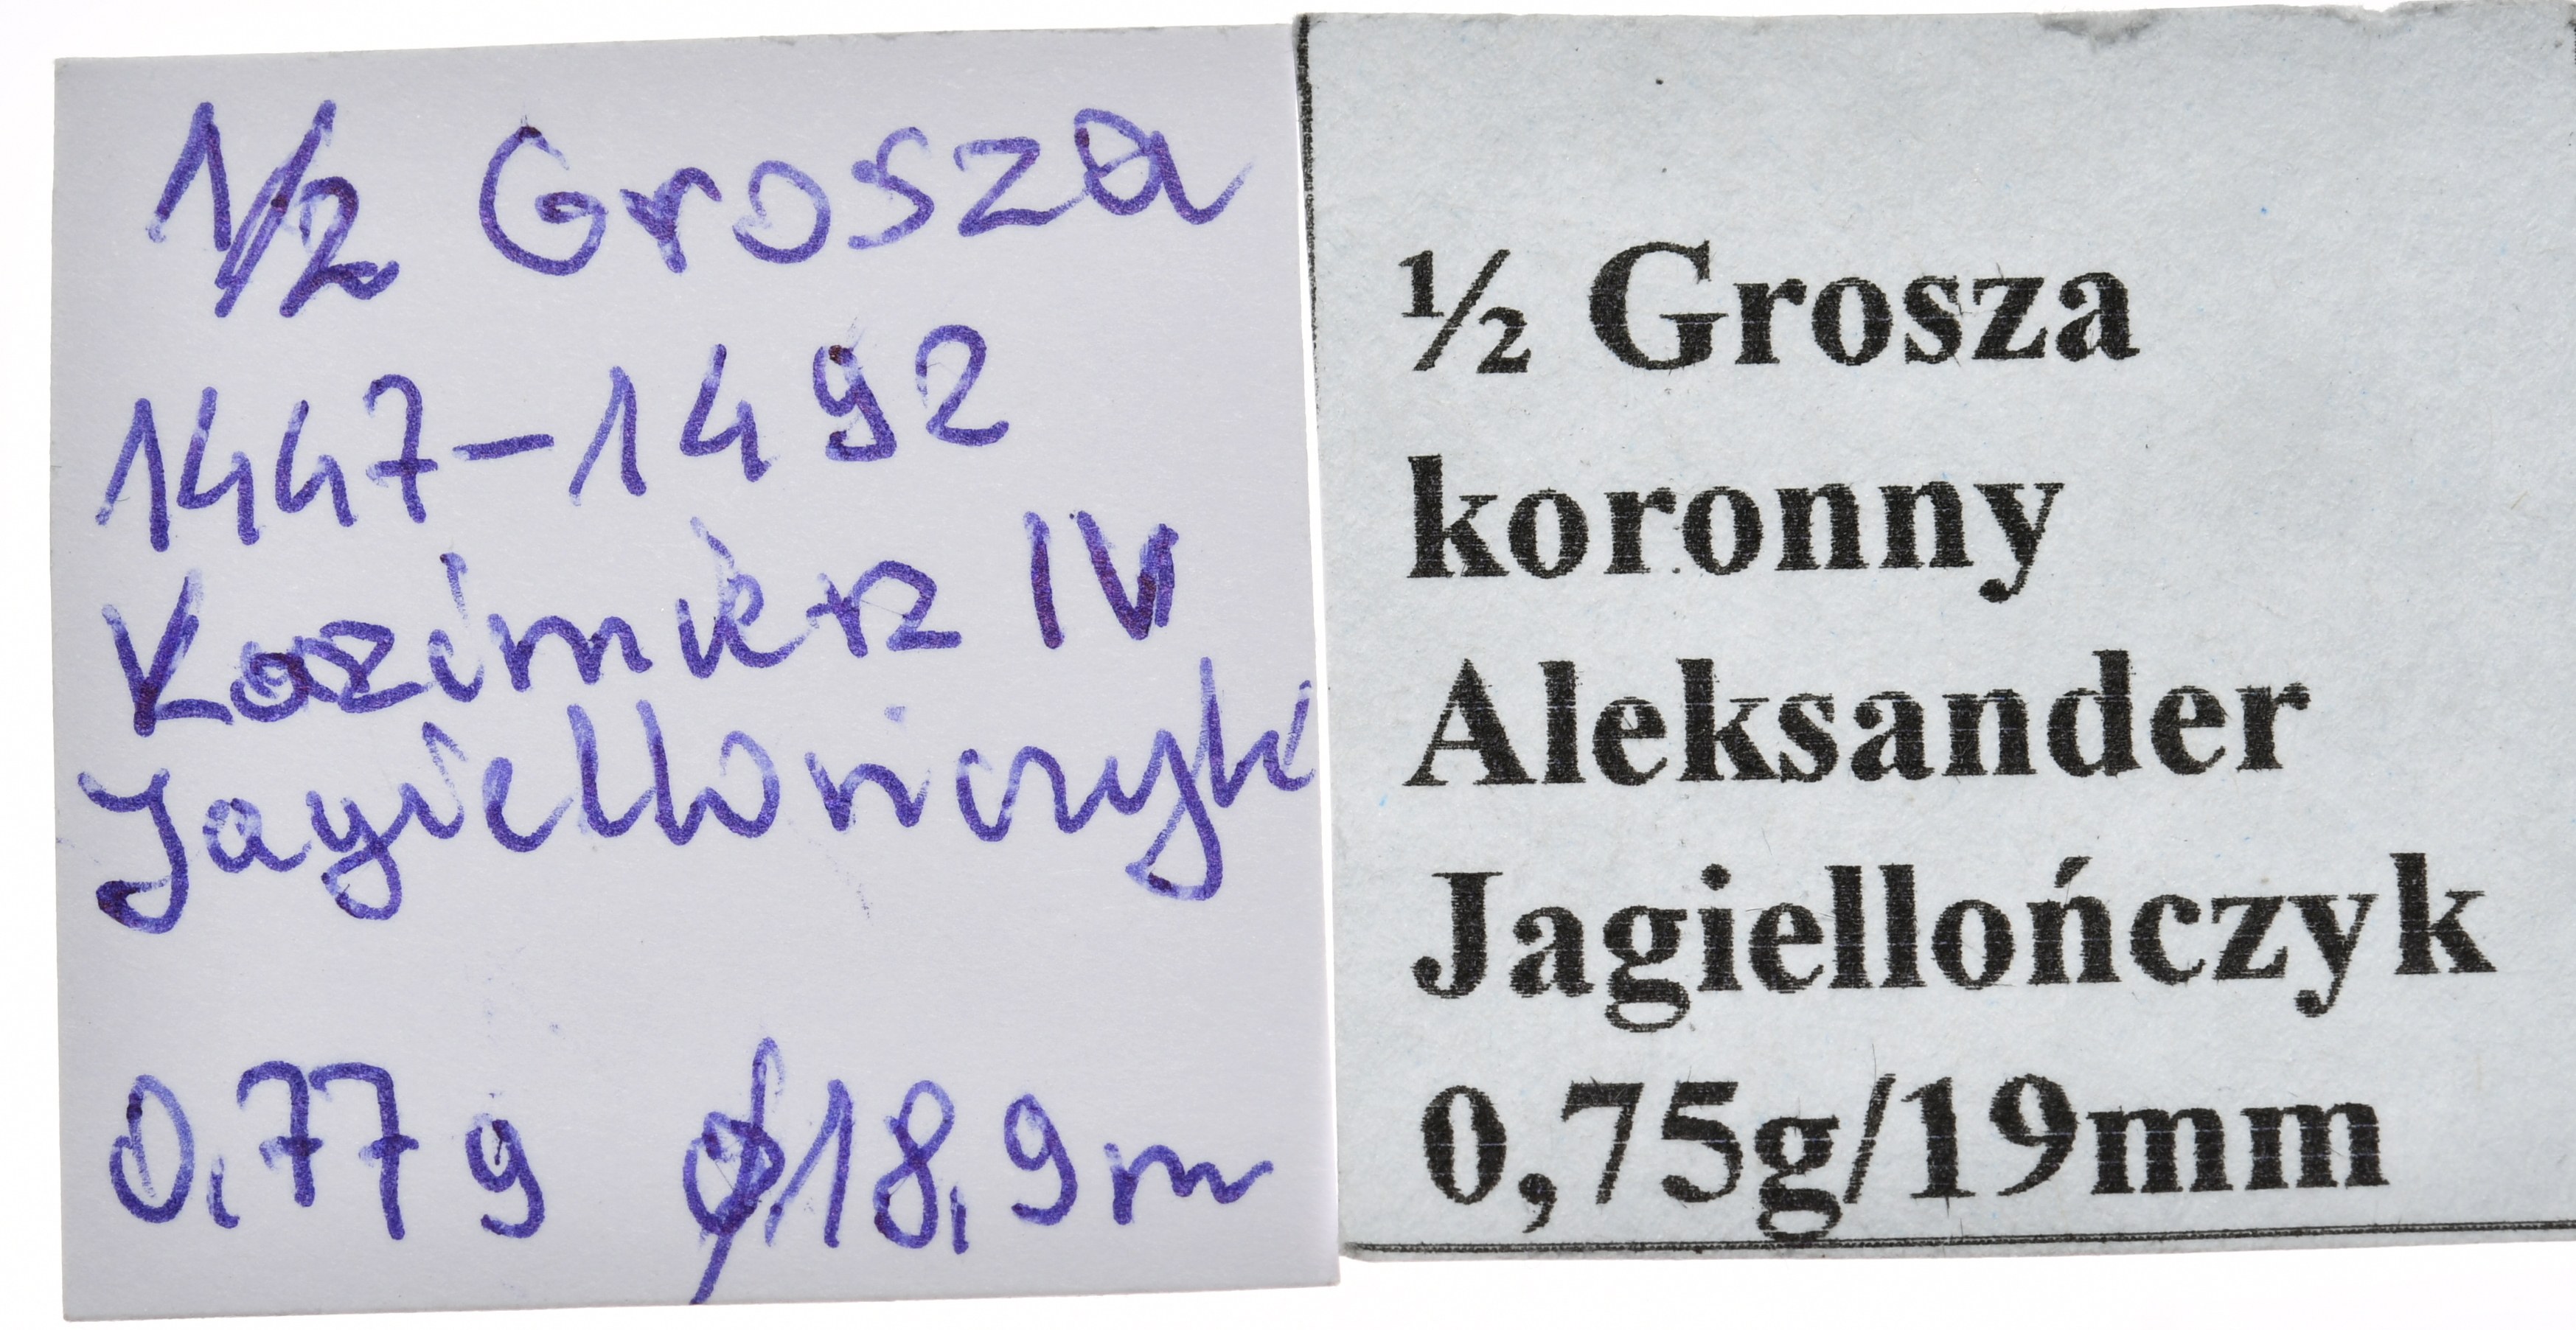 1/2 Grosza
1447-1492
Kazimierz IV
Jagiellończyk
0,77 g ø 18,9 m
½ Grosza
koronny
Aleksander
Jagiellończyk
0,75g/19mm